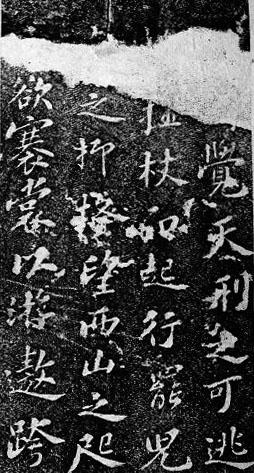 覺天刑之可逃
拄杖而起行罷兒
之抑搔望西山之咫
欲褰裳以游遨跨